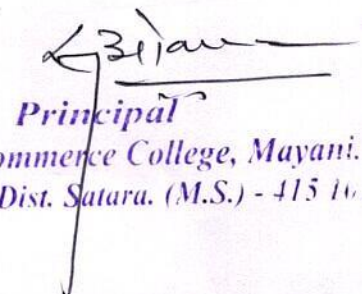 Principal
ommerce College, Mayani.
Dist. Satara. (M.S.) - 415 10